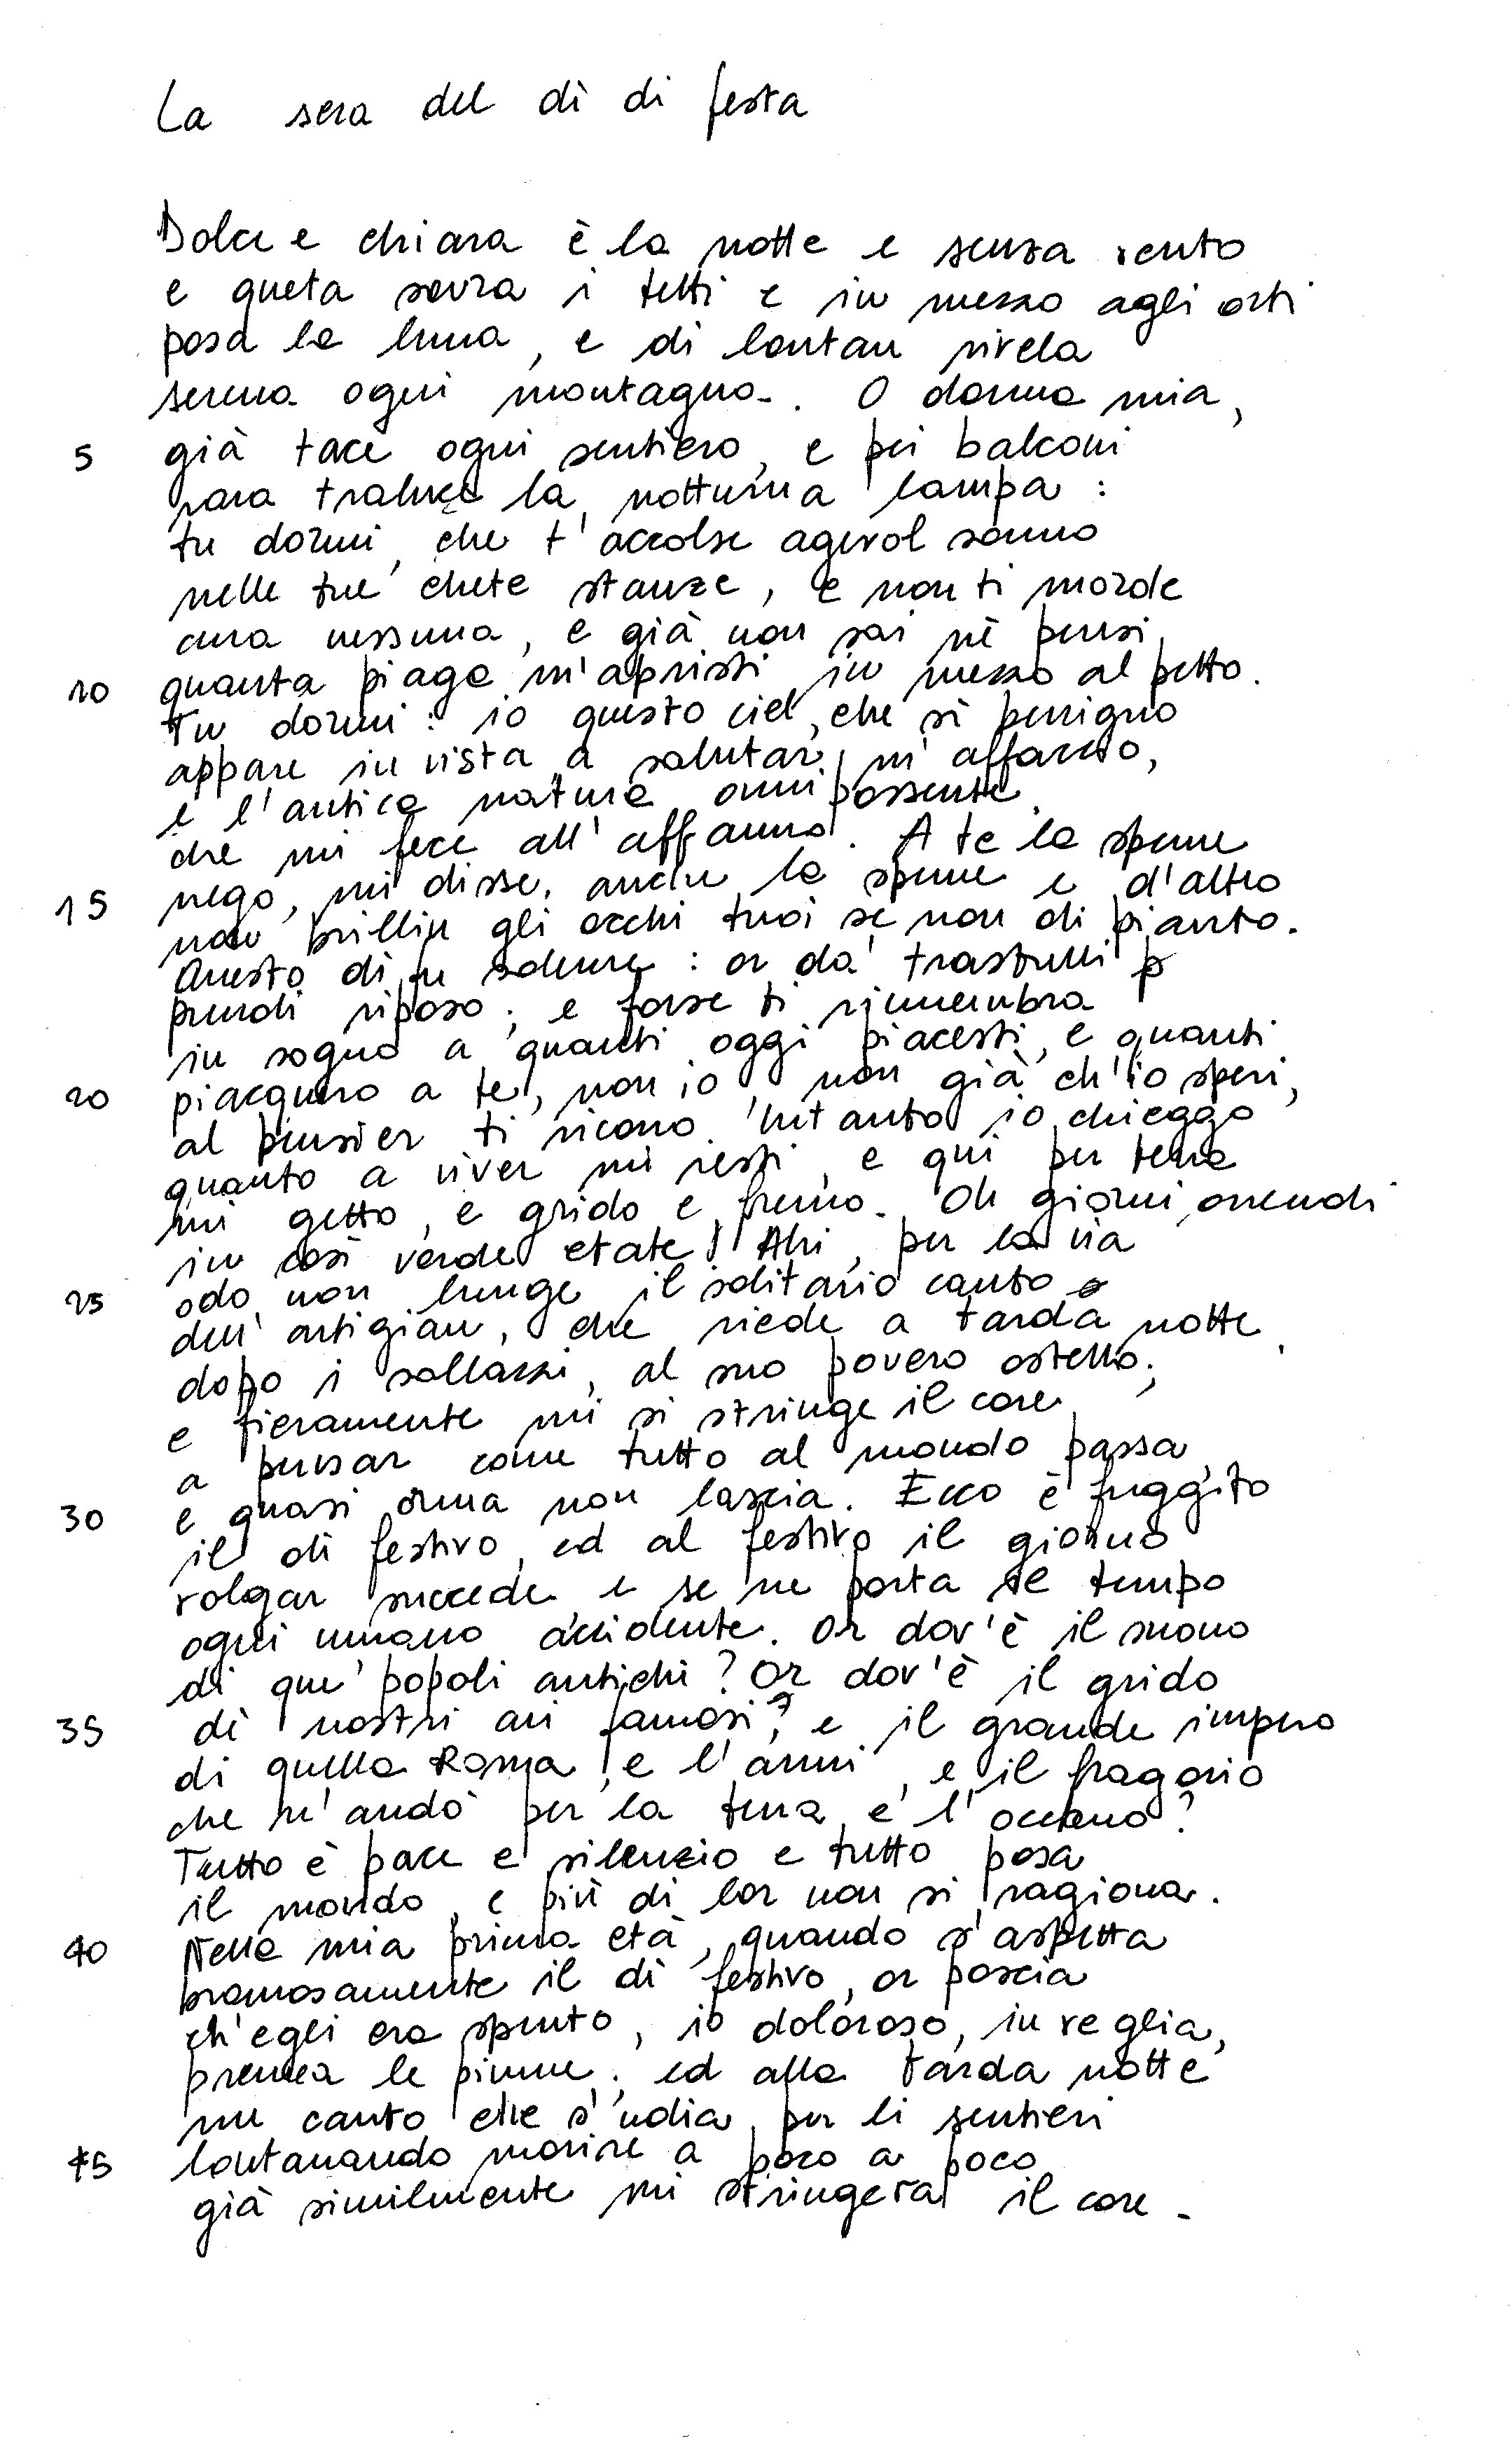 La sera del dì di festa
Dolce e chiara è la notte e senza vento
e queta sovra i tetti e in mezzo agli orti
posa la luna, e di lontan rivela
serena ogni montagna. O donna mia,
5 già tace ogni sentiero, e pei balconi
rara traluce la notturna lampa:
tu dormi, che t'accolse agevol sonno
nelle tue chete stanze, e non ti morde
cura nessuna, e già non sai nè pensi
10 quanta piaga m'apristi in mezzo al petto.
Tu dormi: io questo ciel, che sì benigno
appare in vista, a salutar m'affaccio,
e l'antica natura onnipossente
che mi fece all'affanno. A te la speme
15 nego, mi disse, anche la speme e d'altro
non brillin gli occhi tuoi se non di pianto.
Questo dì fu solenne: or da' trastulli
prendi riposo; e forse ti rimembra
in sogno a quanti oggi piacesti, e quanti
20 piacquero a te, non io, non già ch'io speri,
al pensier ti ricorro. Intanto io chieggo
quanto a viver mi resti, e qui per terra
mi getto, e grido e fremo. Oh giorni orrendi
in così verde etate! Ahi, per la via
25 odo non lunge il solitario canto
dell'artigian, che riede a tarda notte,
dopo i sollazzi, al suo povero ostello;
e fieramente mi si stringe il core
a pensar come tutto al mondo passa,
30 e quasi orma non lascia. Ecco è fuggito
il dì festivo, ed al festivo il giorno
volgar succede e se ne porta il tempo
ogni umano accidente. Or dov'è il suono
di que' popoli antichi? Or dov'è il grido
35 di nostri avi famosi, e il grande impero
di quella Roma, e l'armi, e il fragorio
che n'andò per la terra e l'oceano?
Tutto è pace e silenzio e tutto posa
il mondo, e più di lor non si ragiona.
40 Nella mia prima età, quando s'aspetta
bramosamente il dì festivo, or poscia
ch'egli era spento, io doloroso, in veglia,
premea le piume; ed alla tarda notte
un canto che s'udia per li sentieri
45 lontanando morire a poco a poco
già similmente mi stringeva il core.